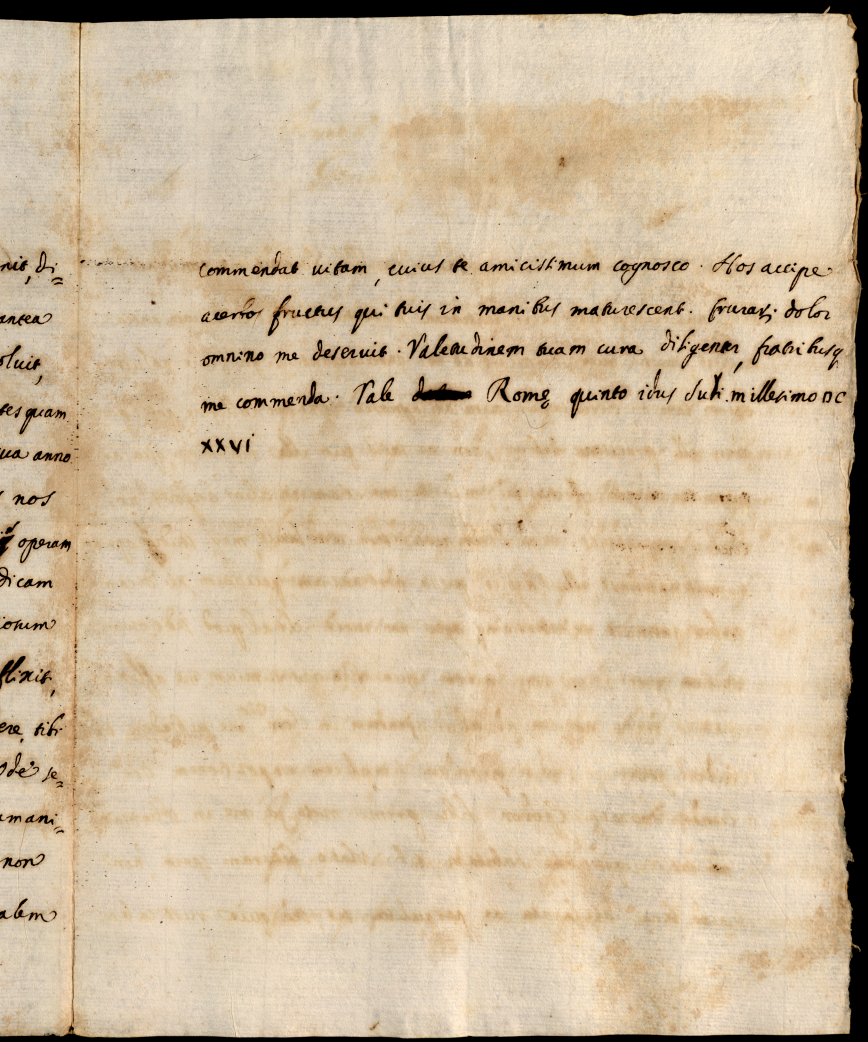 nit, di=
antea
oluit,
tes quam
ua anno
nos
operam
dicam
iorum
flixit,
ere, tibi
ode se=
amani=
non
alem
commendat uitam, cuius te amicissimum cognosco. Hos accipe
acerbos fructus qui tuis in manibus maturescent. dolor
omnino me deseruit. Valetudinem tuam cura diligenter, fratribusq
me commenda. Vale Romę quinto idus millesimo DC
XXVI